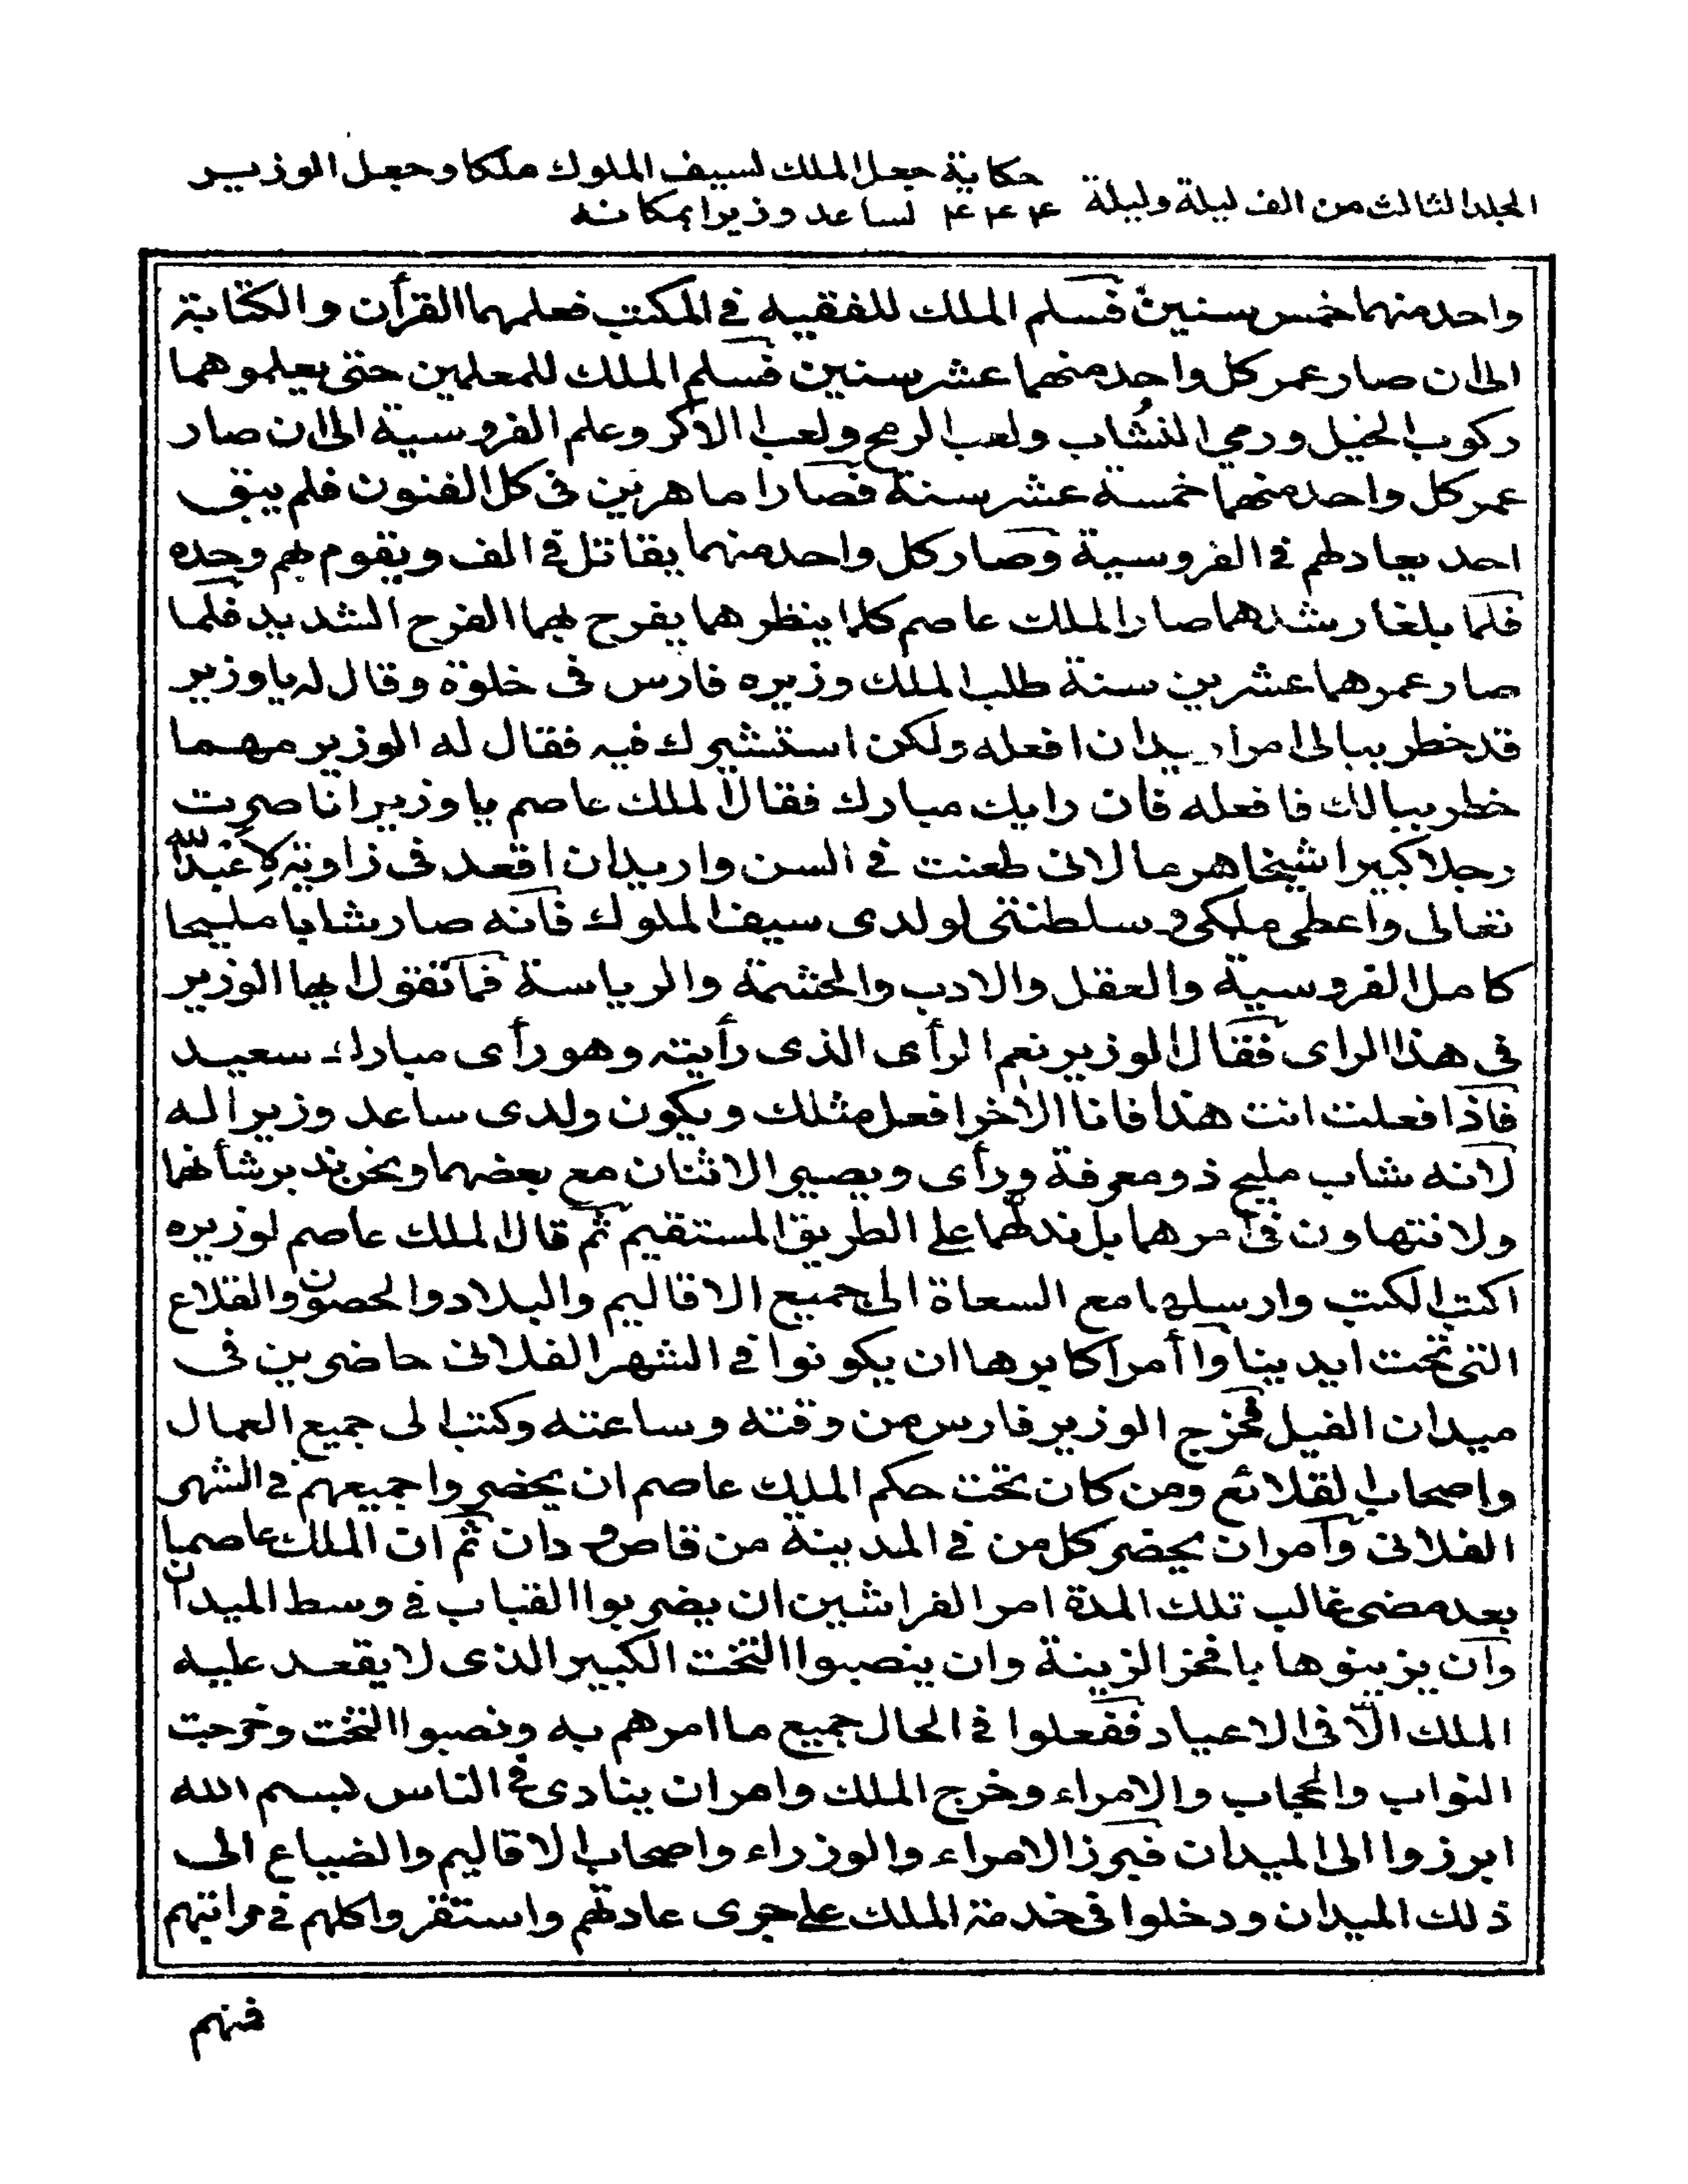 حكاية جعل الملك لسيف الملوك ملكا وجعل الوزير
المجلد الثالث من الف ليلة وليلة ٤٤٤ لساعد وزيرا بمكانه
واحد منهما خمس سنين فسلم الملك للفقيه في المكتب فعلمهما القرأن والكتابة
الى ان صار عمر كل واحد منهما عشر سنين فسلم الملك للمعلمين حتى يعلموهما
ركوب الخيل ورمي النُشاب ولعب الرمح ولعب الاكر وعلم الفروسية الى ان صار
عمر كل واحد منهما خمسة عشر سنة فصارا ماهرين فى كل الفنون فلم يبق
احد يعادلهم في الفروسية وصار كل واحد منهما يقاتل في الف ويقوم بهم وحده
فلما بلغا رشدهما صار الملك عاصم كلما ينظرهما يفرح بهما الفرح الشديد فلما
صار عمرهما عشرين سنة طلب الملك وزيره فارس فى خلوة وقال له يا وزير
قد خطر ببالى امر اريد ان افعله ولكن استشيرك فيه فقال له الوزير مهما
خطر ببالك فافعله فان رايك مبارك فقال الملك عاصم يا وزير انا صرت
رجلا كبيرا شيخا هرما لانى طعنت في السن واريد ان اقعد فى زاوية لِاَعْبدَ الله
تعالى واعطى ملكى وسلطنتى لولدى سيف الملوك فانه صار شابا مليحا
كامل الفروسية والعقل والادب والحشمة والرياسة فما تقول ايها الوزير
فى هذا الراى فقال الوزير نعم الرأى الذى رأيته وهو رأى مبارك سعيد
فاذا فعلت انت هذا فانا الأخر افعل مثلك ويكون ولدى ساعد وزيرا له
لانه شاب مليح ذو معرفة ورأى ويصير الاثنان مع بعضهما ونحن ندبر شأنهما
ولا نتهاون فى أمرهما بل ندلهما على الطريق المستقيم ثم قال الملك عاصم لوزيره
اكتب الكتب وارسلها مع السعاة الى جميع الاقاليم والبلاد والحصون والقلاع
التى تحت ايدينا وأمر اكابرها ان يكونوا في الشهر الفلانى حاضرين فى
ميدان الفيل فخرج الوزير فارس من وقته وساعته وكتب الى جميع العمال
واصحاب القلائع ومن كان تحت حكم الملك عاصم ان يحضروا جميعهم في الشهر
الفلانى وامر ان يحضر كل من في المدينة من قاص ودان ثم ان الملك عاصما
بعد مضى غالب تلك المدة امر الفراشين ان يضربوا القباب في وسط الميدان
وان يزينوها بافخر الزينة وان ينصبوا التخت الكبير الذى لا يقعد عليه
الملك الّا فى الاعياد ففعلوا في الحال جميع ما امرهم به ونصبوا التخت وخرجت
النواب والحجاب والامراء وخرج الملك وامر ان ينادى في الناس لبسم الله
ابرزوا الى الميدان فبرز الامراء والوزراء واصحاب الاقاليم والضياع الى
ذلك الميدان ودخلوا فى خدمة الملك على جرى عادتهم واستقروا كلهم في مراتبهم
فمنهم